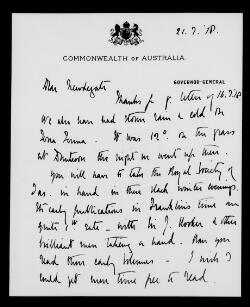 21.7.'18.
COMMONWEALTH OF AUSTRALIA.
GOVERNOR-GENERAL
My dear Newdegate
Thanks for yr. letter of 16.7.18
We also have had storm rain & cold on
. It was 12° on the grass
at the night we went up there.
You will have to take the Royal Society of
Tas. in hand in these dark winter evenings.
Its early publications in Franklin's time are
quite 1st rate – with Sir J. Hooker & other
brilliant men taking a hand. Have you
read those early volumes – I wish I
could get more time free to read.